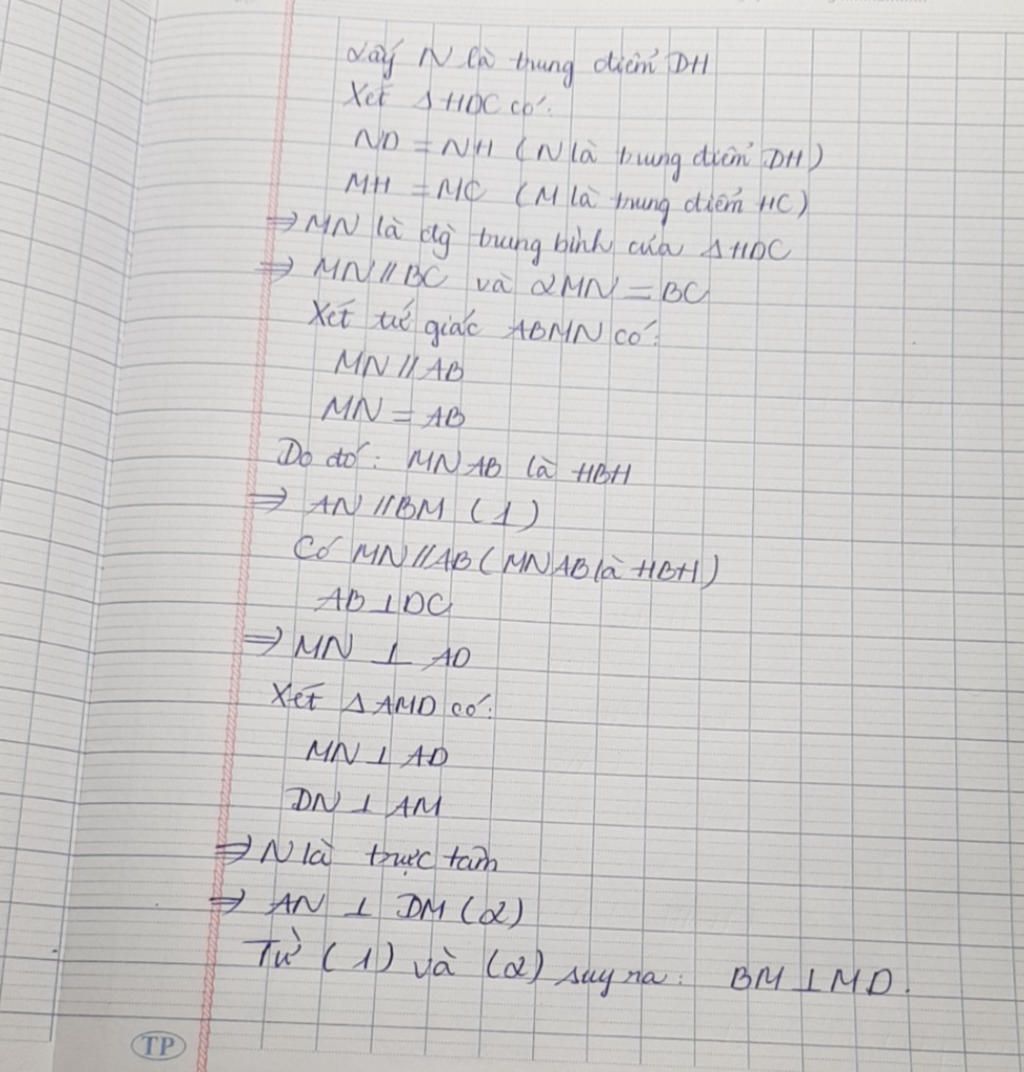 Lấy N là trung điểm DH
Xét Δ HDC có:
ND = NH (N là trung điểm DH)
MH = MC (M là trung điểm HC)
⇒ MN là đg trung bình của Δ HDC
⇒ MN // BC và 2MN = BC
Xét tứ giác ABMN có:
MN // AB
MN = AB
Do đó: MNAB là HBH
⇒ AN // BM (1)
Có MN // AB (MNAB là HBH)
AB ⊥ DC
⇒ MN ⊥ AD
Xét Δ AMD có:
MN ⊥ AD
DN ⊥ AM
⇒ N là trực tâm
⇒ AN ⊥ DM (2)
Từ (1) và (2) suy ra: BM ⊥ MD.
TP